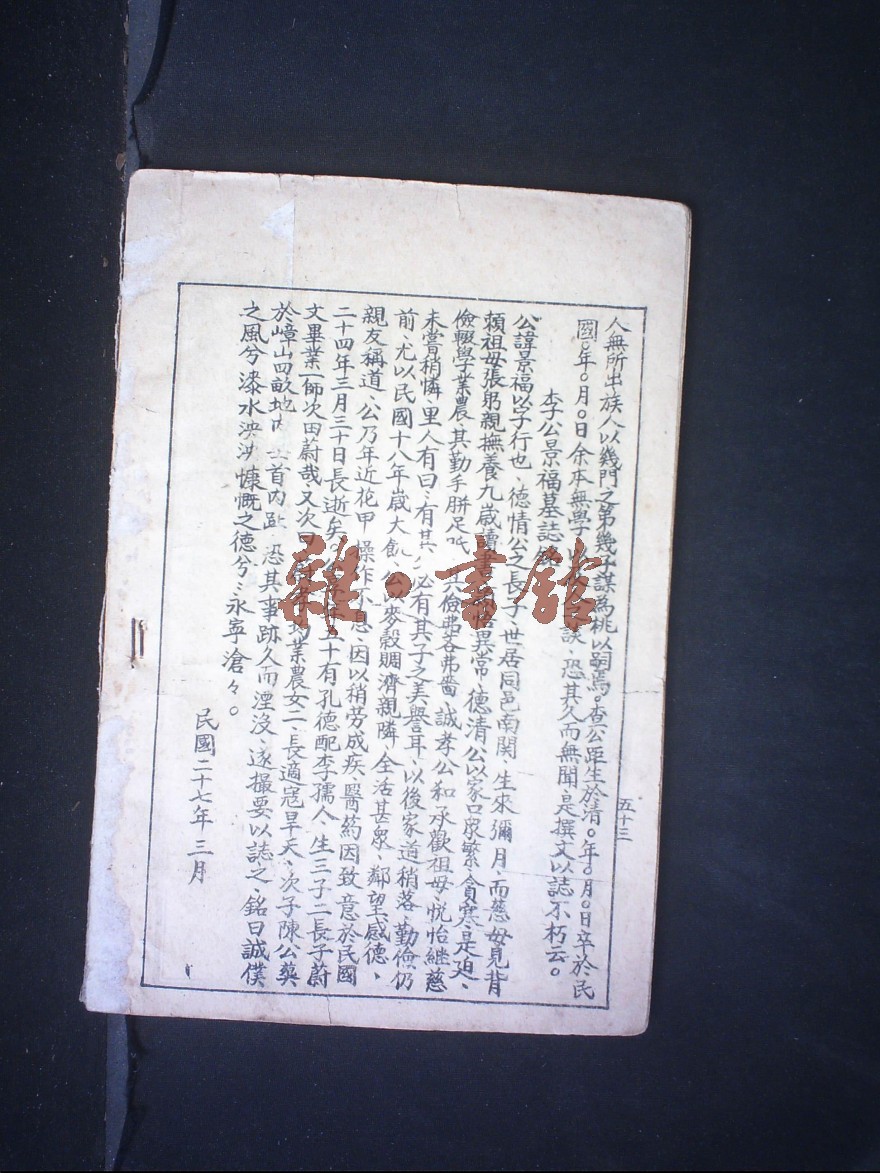 人無所出族人以幾門之第幾子謀為祧以嗣焉。查公距生於清〇年〇月〇日卒於民
國〇年〇月〇日余本無學恐其久而無聞、是撰文以誌不朽云。
李公景福墓誌銘
公諱景福以字行也、德情公之長子、世居同邑南関、生來彌月、而慈母見背
賴祖母張躬親撫養九歲讀書異常、德清公以家口衆繁、貧寒是迫、
儉輟學業農、其勤手胼足其儉弗吝弗嗇、誠孝公和承歡祖母、悅怡继慈
未嘗稍憐、里人有曰、有其必有其子之美譽耳、以後家道稍落、勤儉仍
前、尤以民國十八年歲大飢公以麥穀賙濟親隣、全活甚衆、鄰望感德、
親友稱道、公乃年近花甲、操作不息、因以稍劳成疾、醫葯因致、意於民國
二十四年三月三十日長逝矣。五十有孔德配李孺人、生三子二長子蔚
文畢業一師次田蔚哉、又次業農女二、長適寇旱天、次子陳公葬
於嶂山四畝地内首内趾、恐其事跡久而湮没、遂撮要以誌之、銘曰誠僕
之風兮、漆水泱泱、慷慨之德兮、永寧滄々。
民國二十七年三月
五十三
雜·書館